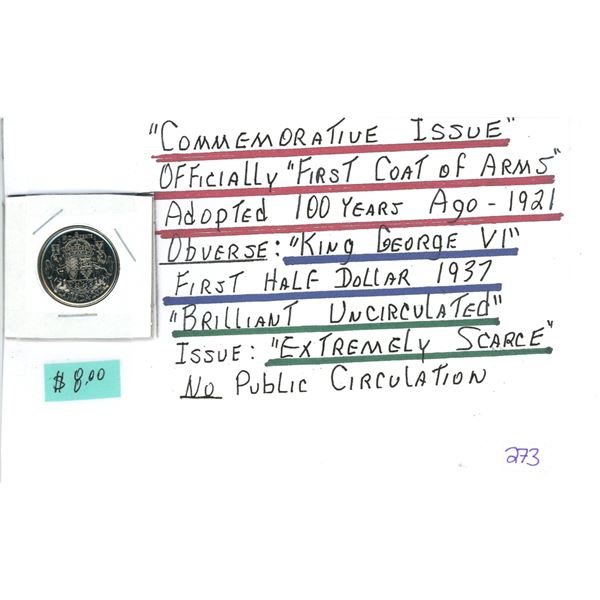 "COMMEMORATIVE ISSUE"
OFFICIALLY "FIRST COAT OF ARMS"
ADOPTED 100 YEARS AGO - 1921
OBVERSE: "KING GEORGE VI"
FIRST HALF DOLLAR 1937
"BRILLIANT UNCIRCULATED"
ISSUE: "EXTREMELY SCARCE"
NO PUBLIC CIRCULATION
$ 8.00
273